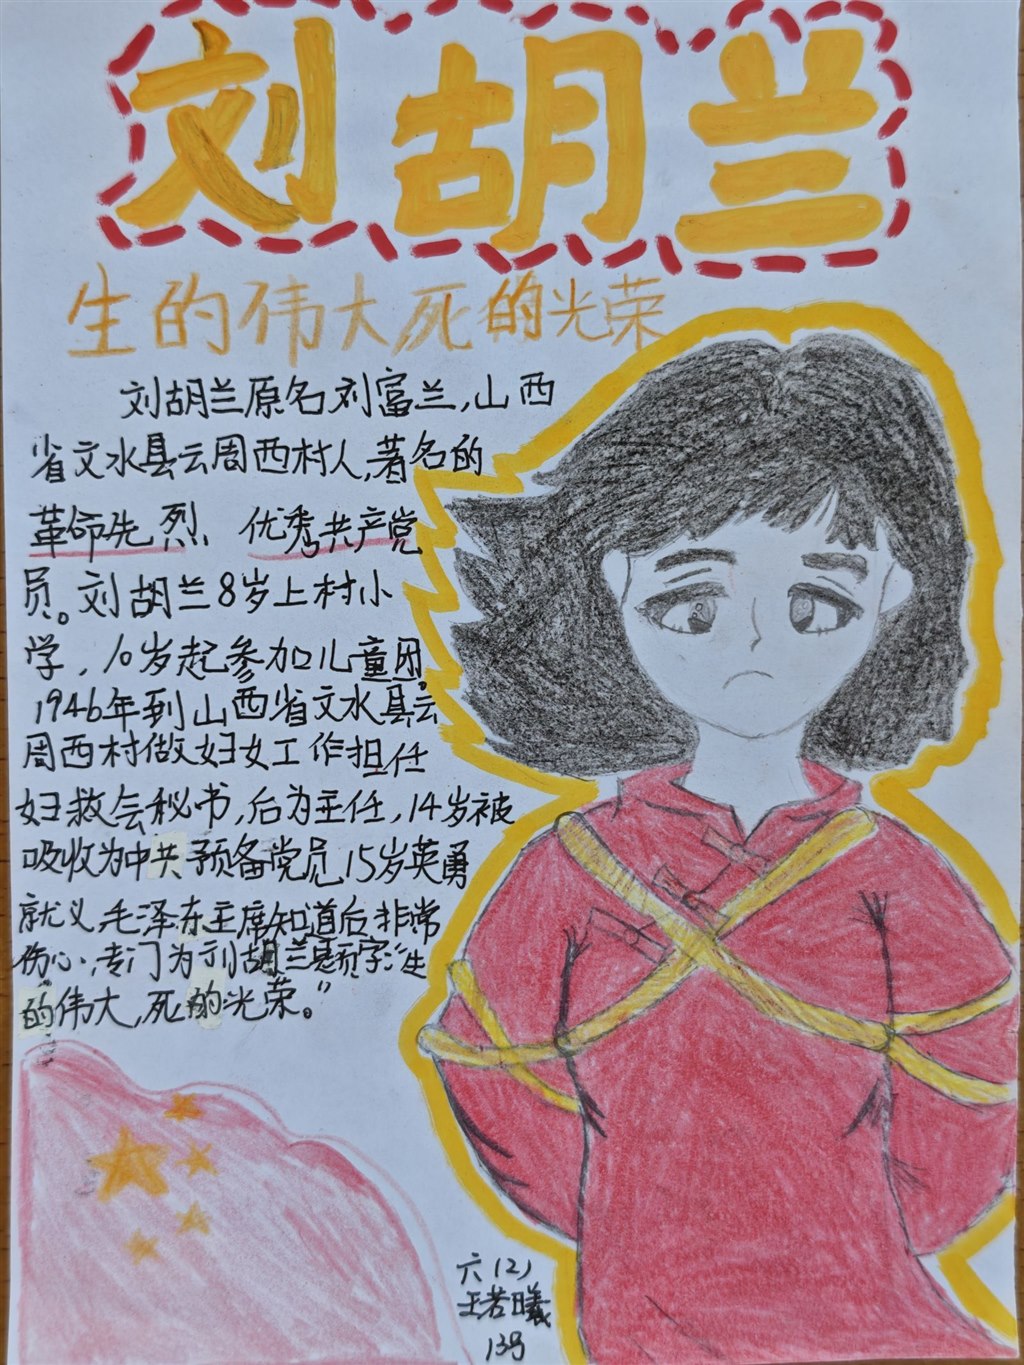 刘胡兰
生的伟大死的光荣
刘胡兰原名刘富兰,山西
省文水县云周西村人,著名的
革命先烈、优秀共产党
员。刘胡兰8岁上村小
学,10岁起参加儿童团,
1946年到山西省文水县云
周西村做妇女工作担任
妇救会秘书,后为主任,14岁被
吸收为中共预备党员15岁英勇
就义毛泽东主席知道后非常
伤心,专门为刘胡兰题字:“生
的伟大,死的光荣。”
六(2)
王若曦
13号